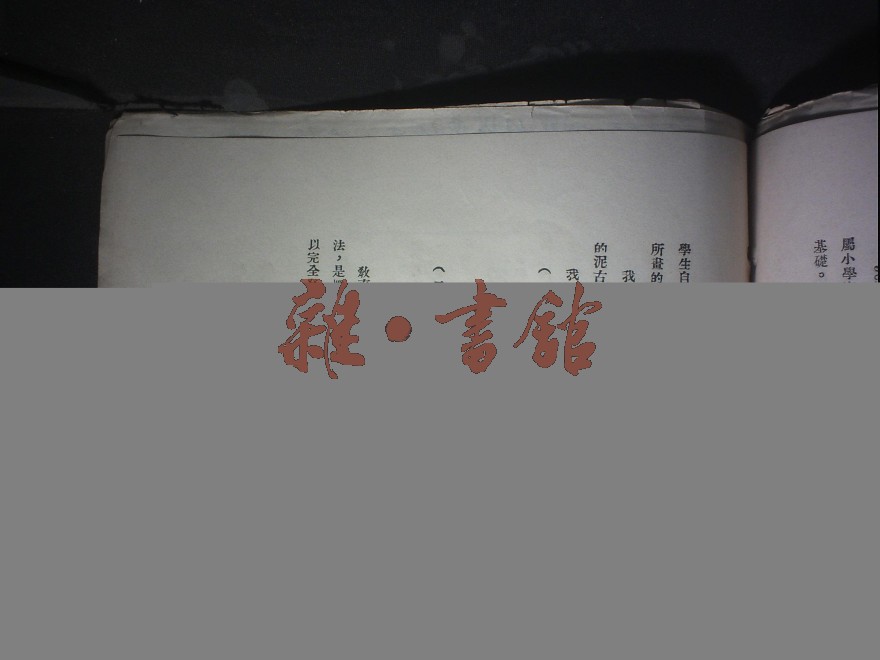 屬小學
基礎。
學生自
所畫的
我
的泥古
我
（
（
法，是
以完全
雜·書館